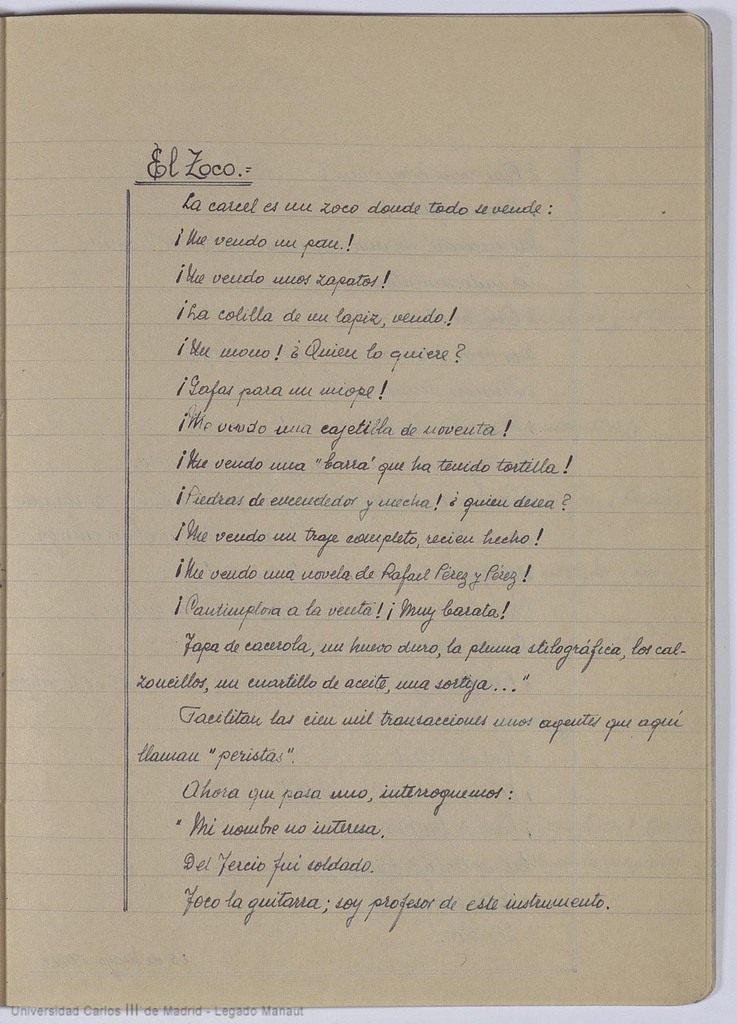 El Zoco.=
La carcel es un zoco donde todo se vende:
¡Me vendo un pan.!
¡Me vendo unos zapatos!
¡La colilla de un lapiz, vendo!
¡Un mono! ¿Quien lo quiere?
¡Gafas para un miope!
¡Me vendo una cajetilla de noventa!
¡Me vendo una "barra" que ha tenido tortilla!
¡Piedras de encendedor y mecha! ¿quien desea?
¡Me vendo un traje completo, recien hecho!
¡Me vendo una novela de Rafael Pérez y Pérez!
¡Cantimplora a la venta! ¡Muy barata!
Tapa de cacerola, un huevo duro, la pluma stilográfica, los cal-
zoncillos, un cuartillo de aceite, una sortija..."
Facilitan las cien mil transacciones unos agentes que aquí
llaman "peristas".
Ahora que pasa uno, interroguemos:
"Mi nombre no interesa.
Del Tercio fui soldado.
Toco la guitarra; soy profesor de este instrumento.
Universidad Carlos III de Madrid - Legado Manaut